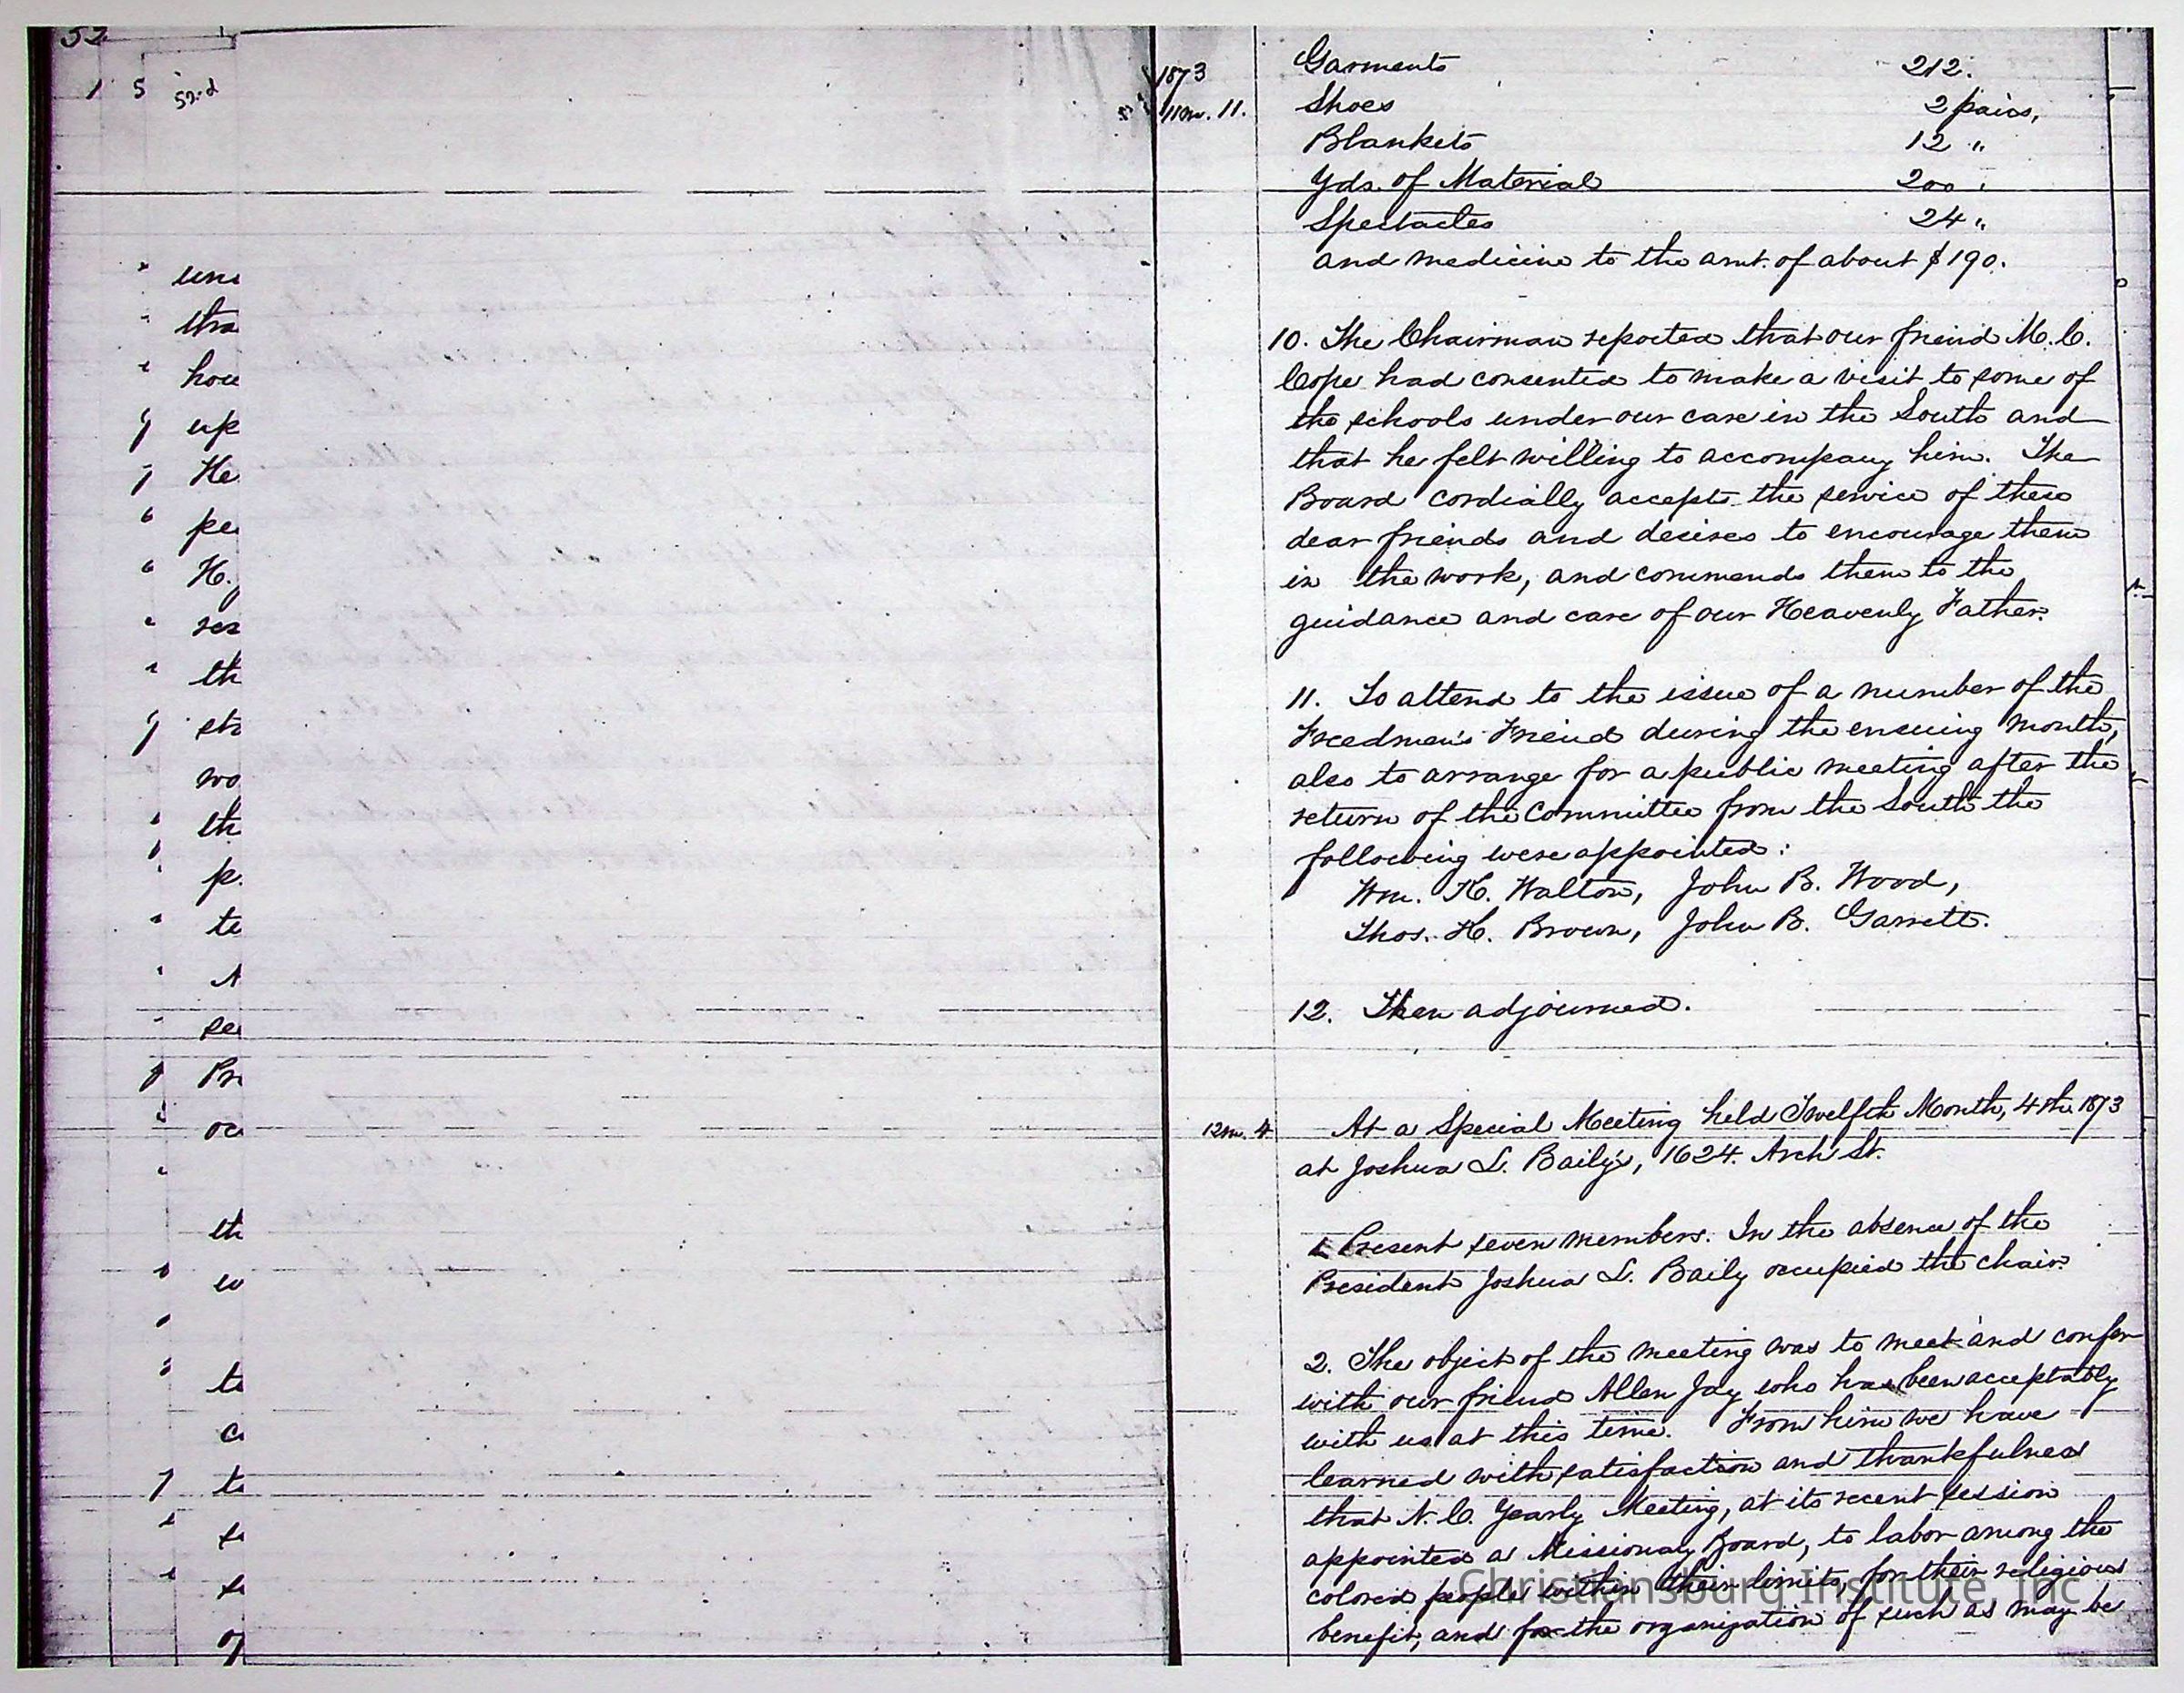 52
1 5 52nd
uni
tha
hou
up
He
pe
H.
ser
th
str
wo
th
p.
te
N
se
Pr
oc
th
w
to
a
to
of
1873
11m. 11.
Garments 212.
Shoes 2 pairs,
Blankets 12 "
Yds. of Material 200 "
Spectacles 24 "
and medicine to the amt. of about $190.
10. The Chairman reported that our friend M. C.
Cope had consented to make a visit to some of
the schools under our care in the South and
that he felt willing to accompany him. The
Board cordially accepts the service of these
dear friends and desires to encourage them
in the work, and commends them to the
guidance and care of our Heavenly Father.
11. To attend to the issue of a number of the
Freedmen's Friend during the ensuing month,
also to arrange for a public meeting after the
return of the Committee from the South the
following were appointed:
Wm. H. Walton, John B. Wood,
Thos. H. Brown, John B. Garrett.
12. Then adjourned.
12m. 4
At a Special Meeting held Twelfth Month, 4th 1873
at Joshua L. Baily's, 1624 Arch St.
1. Present seven members. In the absence of the
President Joshua L. Baily occupied the chair.
2. The object of the meeting was to meet and confer
with our friend Allen Jay who has been acceptably
with us at this time. From him we have
learned with satisfaction and thankfulness
that N. C. Yearly Meeting, at its recent session
appointed a Missionary Board, to labor among the
colored people within their limits, for their religious
benefit, and for the organization of such as may be
Christiansburg Institute, Inc